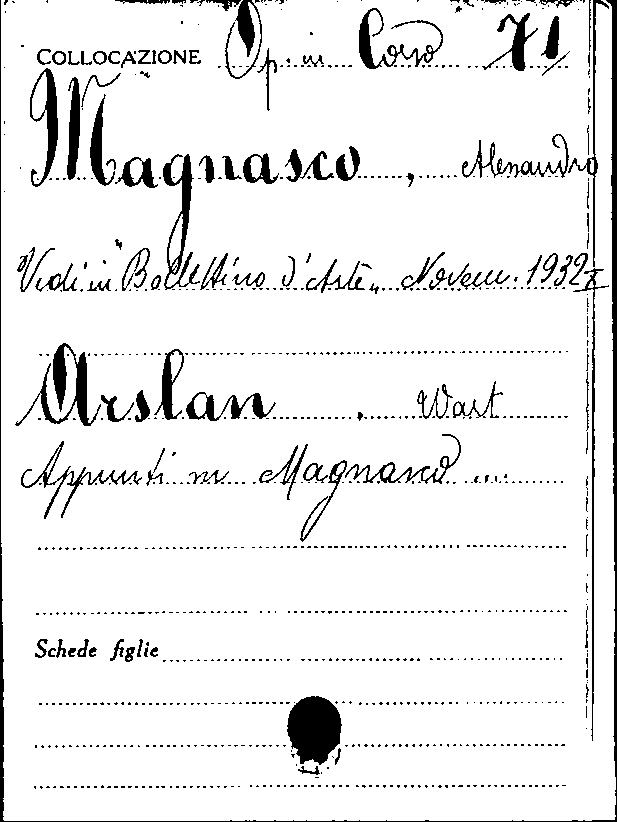 COLLOCAZIONE Op. in Corso 71
Magnasco, Alessandro
Vedi in "Bollettino d'Arte" Novem. 1932 X
Arslan, Wart
Appunti su Magnasco ...
Schede figlie